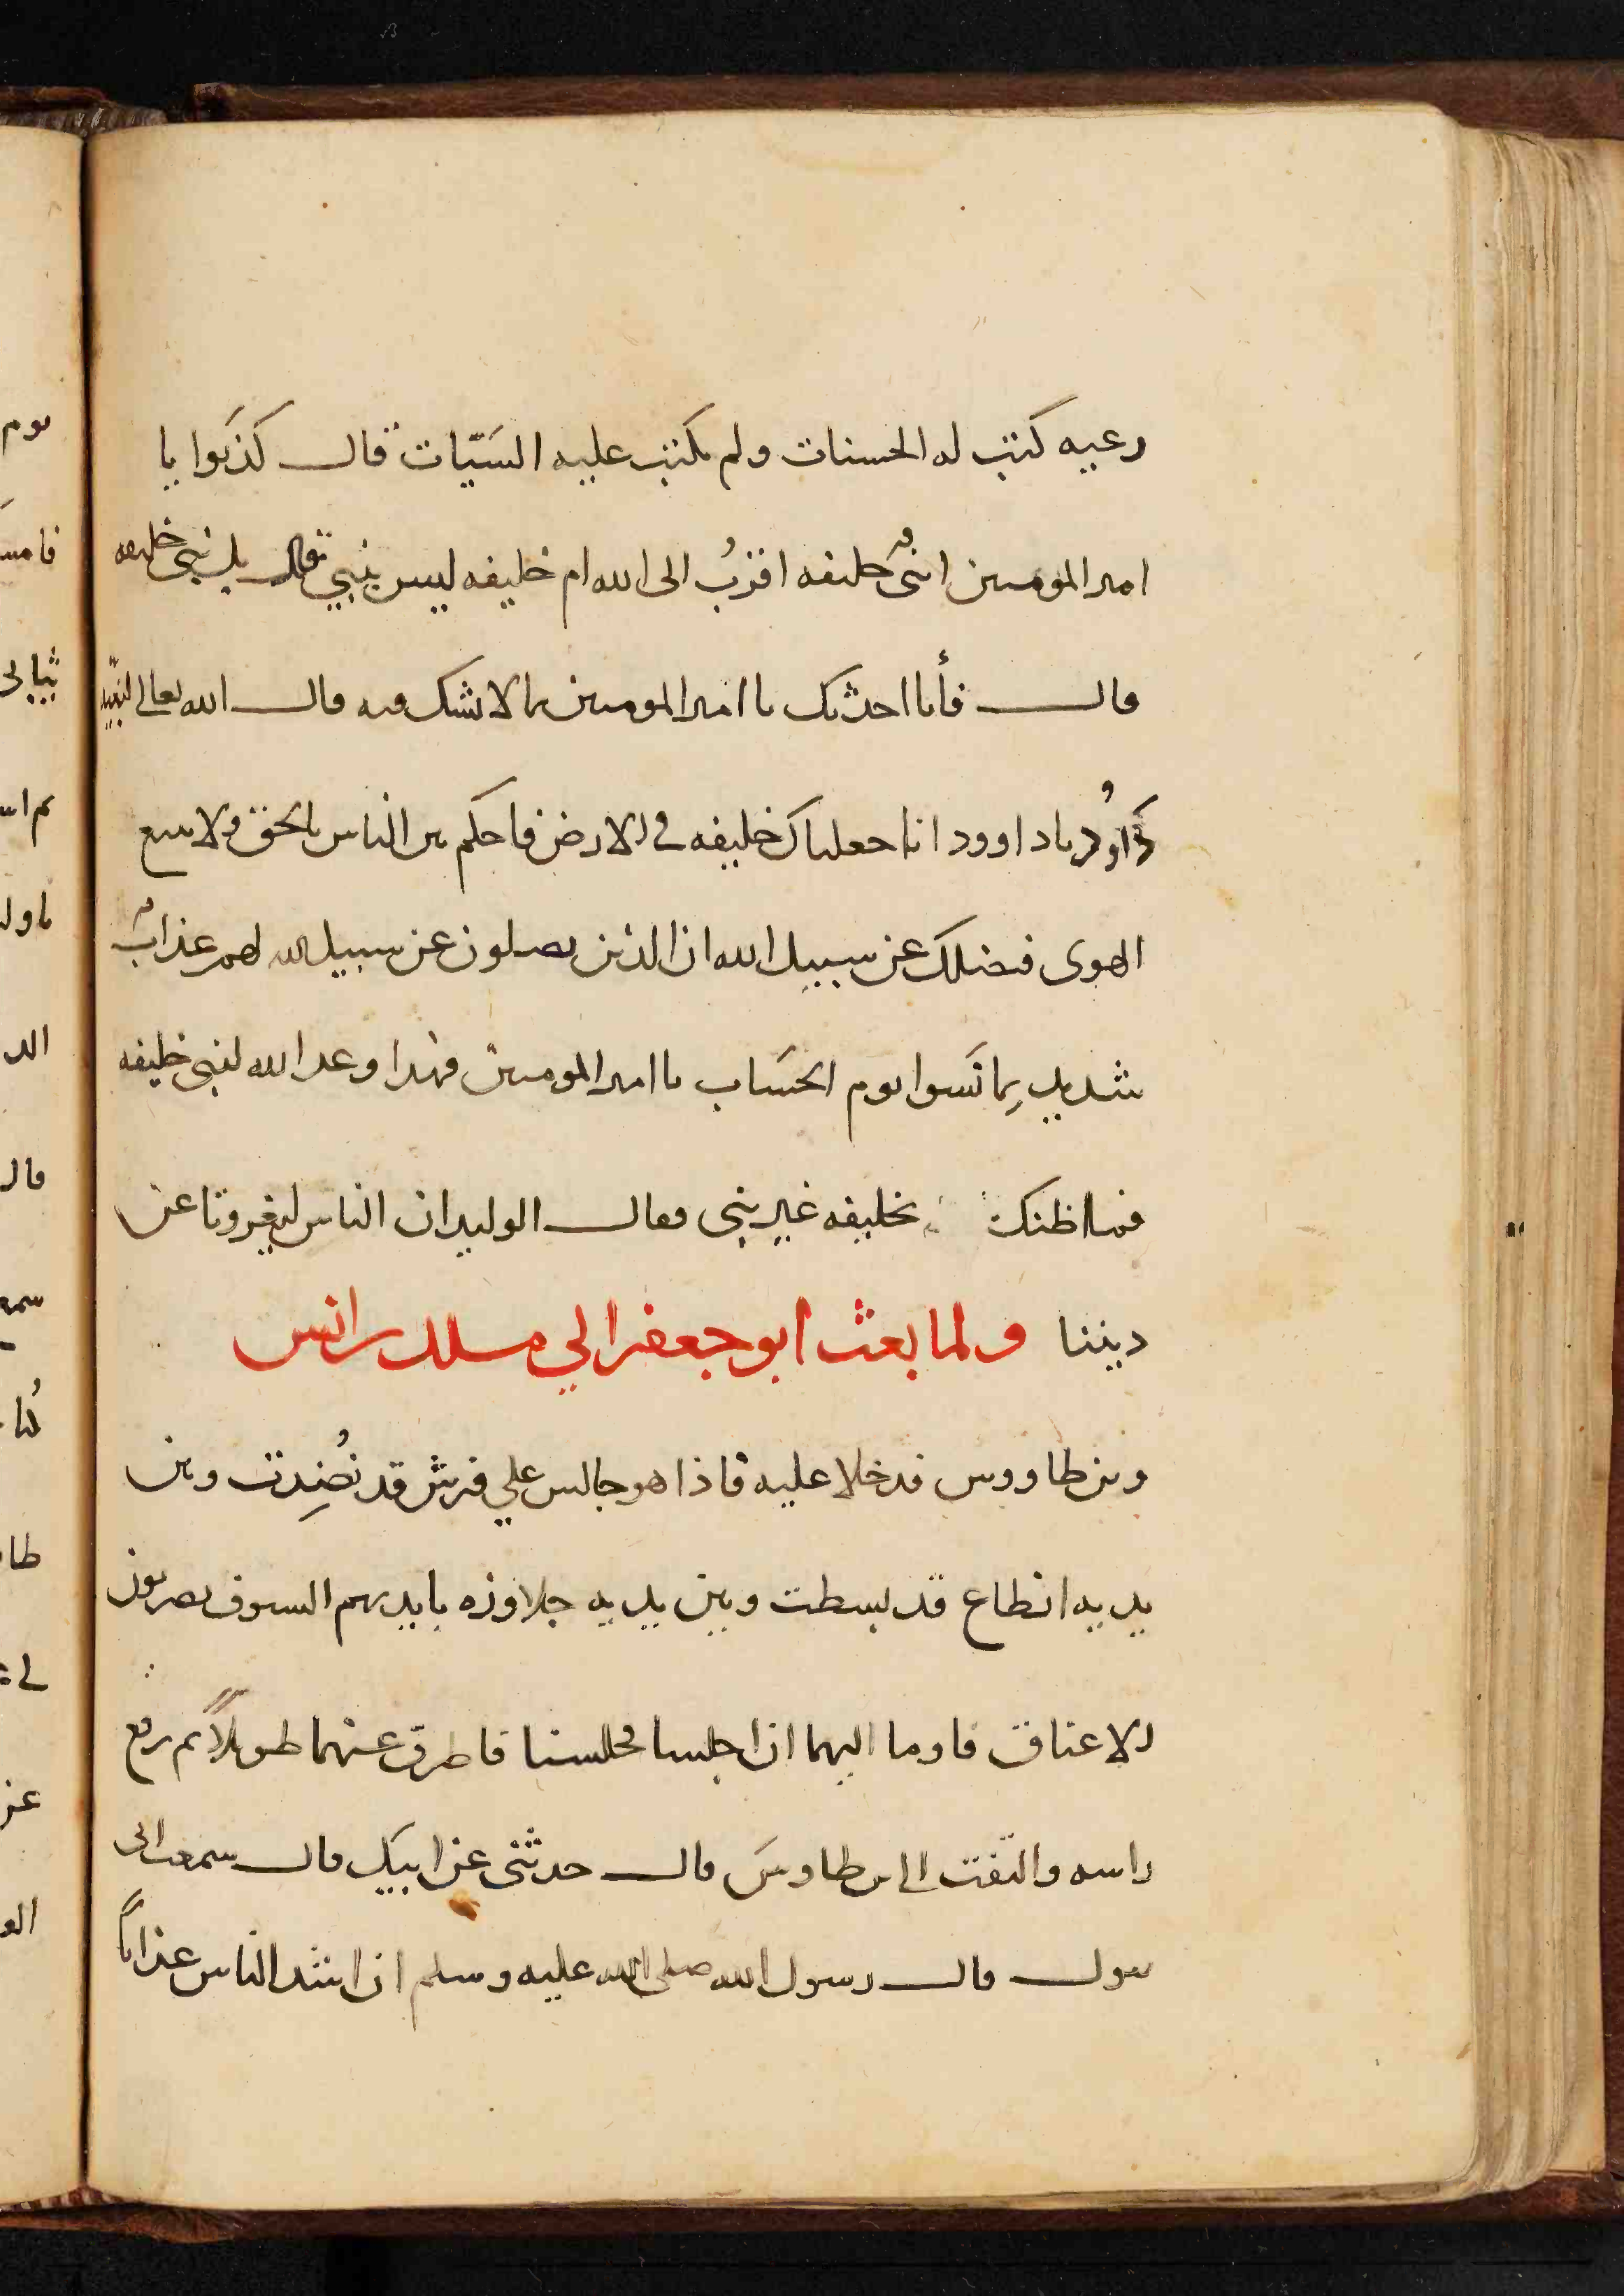 رعيه كتب له الحسنات ولم يكتب عليه السيّات قال كذبوا يا
امير المومنين انبىٌ خليفه اقربُ الى الله ام خليفه ليس بنبي قال بل نبي خليفه
قال فأنا احدثك يا امير المومنين بما لا تشك فيه قال الله تعالى لنبيّه
داوُد يا داوود انا جعلناك خليفه في الارض فاحكم بين الناس بالحق ولا تتبع
الهوى فيضلك عن سبيل الله ان الذين يضلون عن سبيل الله لهم عذابٌ
شديد بِما نَسوا يوم الحسَاب يا امير المومنين فهذا وعد الله لنبي خليفه
فما ظنك بخليفه غير نبي فقال الوليد ان الناس ليغرونا عن
ديننا ولما بعث ابو جعفر الي ملك بن انس
وبن طاووس فدخلا عليه فاذا هو جالس علي فرش قد نُضِدت وبين
يديه انطاع قد بسطت وبين يديه جلاوزه بايديهم السيوف يضربون
الاعناق فاوما اليهما ان اجلسا فجلسنا فاطرق عنهما طويلاً ثم رفع
راسه والتفت الى بن طاوسَ قال حدثنى عن ابيك قال سمعت ابى
يقول قال رسول الله صلى الله عليه وسلم ان اشد الناس عذاباً